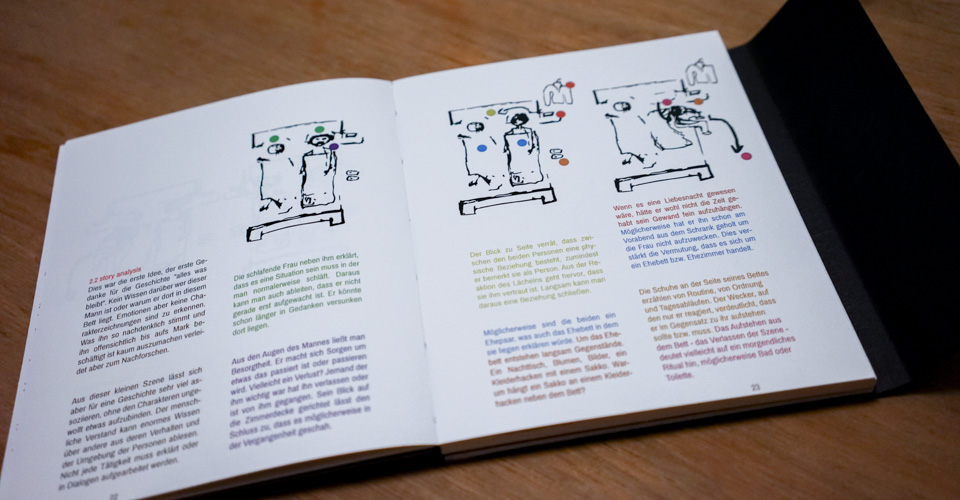 2.2 story analysis
Dies war die erste Idee, der erste Ge-
danke für die Geschichte "alles was
bleibt". Kein Wissen darüber wer dieser
Mann ist oder warum er dort in diesem
Bett liegt. Emotionen aber keine Cha-
rakterzeichnungen sind zu erkennen.
Was ihn so nachdenklich stimmt und
ihn offensichtlich bis aufs Mark be-
schäftigt ist kaum auszumachen verlei-
det aber zum Nachforschen.
Aus dieser kleinen Szene lässt sich
aber für eine Geschichte sehr viel as-
soziieren, ohne den Charakteren unge-
wollt etwas aufzubinden. Der mensch-
liche Verstand kann enormes Wissen
über andere aus deren Verhalten und
der Umgebung der Personen ablesen.
Nicht jede Tätigkeit muss erklärt oder
in Dialogen aufgearbeitet werden.
22
Die schlafende Frau neben ihm erklärt,
dass es eine Situation sein muss in der
man normalerweise schläft. Daraus
kann man auch ableiten, dass er nicht
gerade erst aufgewacht ist. Er könnte
schon länger in Gedanken versunken
dort liegen.
Aus den Augen des Mannes ließt man
Besorgtheit. Er macht sich Sorgen um
etwas das passiert ist oder passieren
wird. Vielleicht ein Verlust? Jemand der
ihm wichtig war hat ihn verlassen oder
ist von ihm gegangen. Sein Blick auf
die Zimmerdecke gerichtet lässt den
Schluss zu, dass es möglicherweise in
der Vergangenheit geschah.
Der Blick zu Seite verrät, dass zwi-
schen den beiden Personen eine phy-
sische Beziehung besteht, zumindest
er bemerkt sie als Person. Aus der Re-
aktion des Lächelns geht hervor, dass
sie ihm vertraut ist. Langsam kann man
daraus eine Beziehung schließen.
Möglicherweise sind die beiden ein
Ehepaar, was auch das Ehebett in dem
sie liegen erklären würde. Um das Ehe-
bett entstehen langsam Gegenstände.
Ein Nachttisch, Blumen, Bilder, ein
Kleiderhacken mit einem Sakko. War-
um hängt ein Sakko an einem Kleider-
hacken neben dem Bett?
Wenn es eine Liebesnacht gewesen
wäre, hätte er wohl nicht die Zeit ge-
habt sein Gewand fein aufzuhängen.
Möglicherweise hat er ihn schon am
Vorabend aus dem Schrank geholt um
die Frau nicht aufzuwecken. Dies ver-
stärkt die Vermutung, dass es sich um
ein Ehebett bzw. Ehezimmer handelt.
Die Schuhe an der Seite seines Bettes
erzählen von Routine, von Ordnung
und Tagesabläufen. Der Wecker, auf
den nur er reagiert, verdeutlicht, dass
er im Gegensatz zu ihr aufstehen
sollte bzw. muss. Das Aufstehen aus
dem Bett - das Verlassen der Szene -
deutet vielleicht auf ein morgendliches
Ritual hin, möglicherweise Bad oder
Toilette.
23